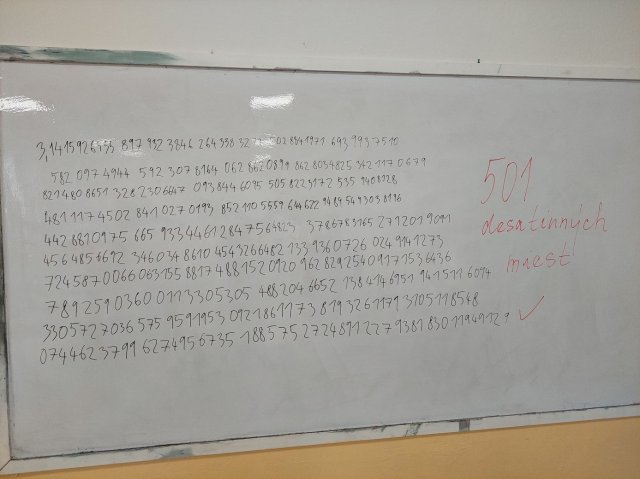 3,1415926535 897 932 3846 264 338 3279 502 8841971 693 993 7510
582 097 4944 592 307 8164 062 862 0899 862 8034825 342 117 0679
821 480 8651 328 230 6647 093 844 6095 505 822 3172 535 940 8128
481 117 4502 841 027 0193 852 110 5559 644 622 9489 54 9303 8196
442 881 0975 665 933 4461 284 756 4823 378 678 3165 271 201 9091
456 485 6692 346 034 8610 454 326 6482 133 936 0726 024 914 1273
724 587 0066 063 155 8817 488 152 0920 962 829 2540 917 153 6436
789 259 0360 011 330 5305 488 204 6652 138 414 6951 941 511 6094
330 572 7036 575 959 1953 092 186 1173 819 326 1179 310 511 8548
074 462 3799 627 495 6735 188 575 2724 891 227 9381 830 119 4912
501
desatinných
miest